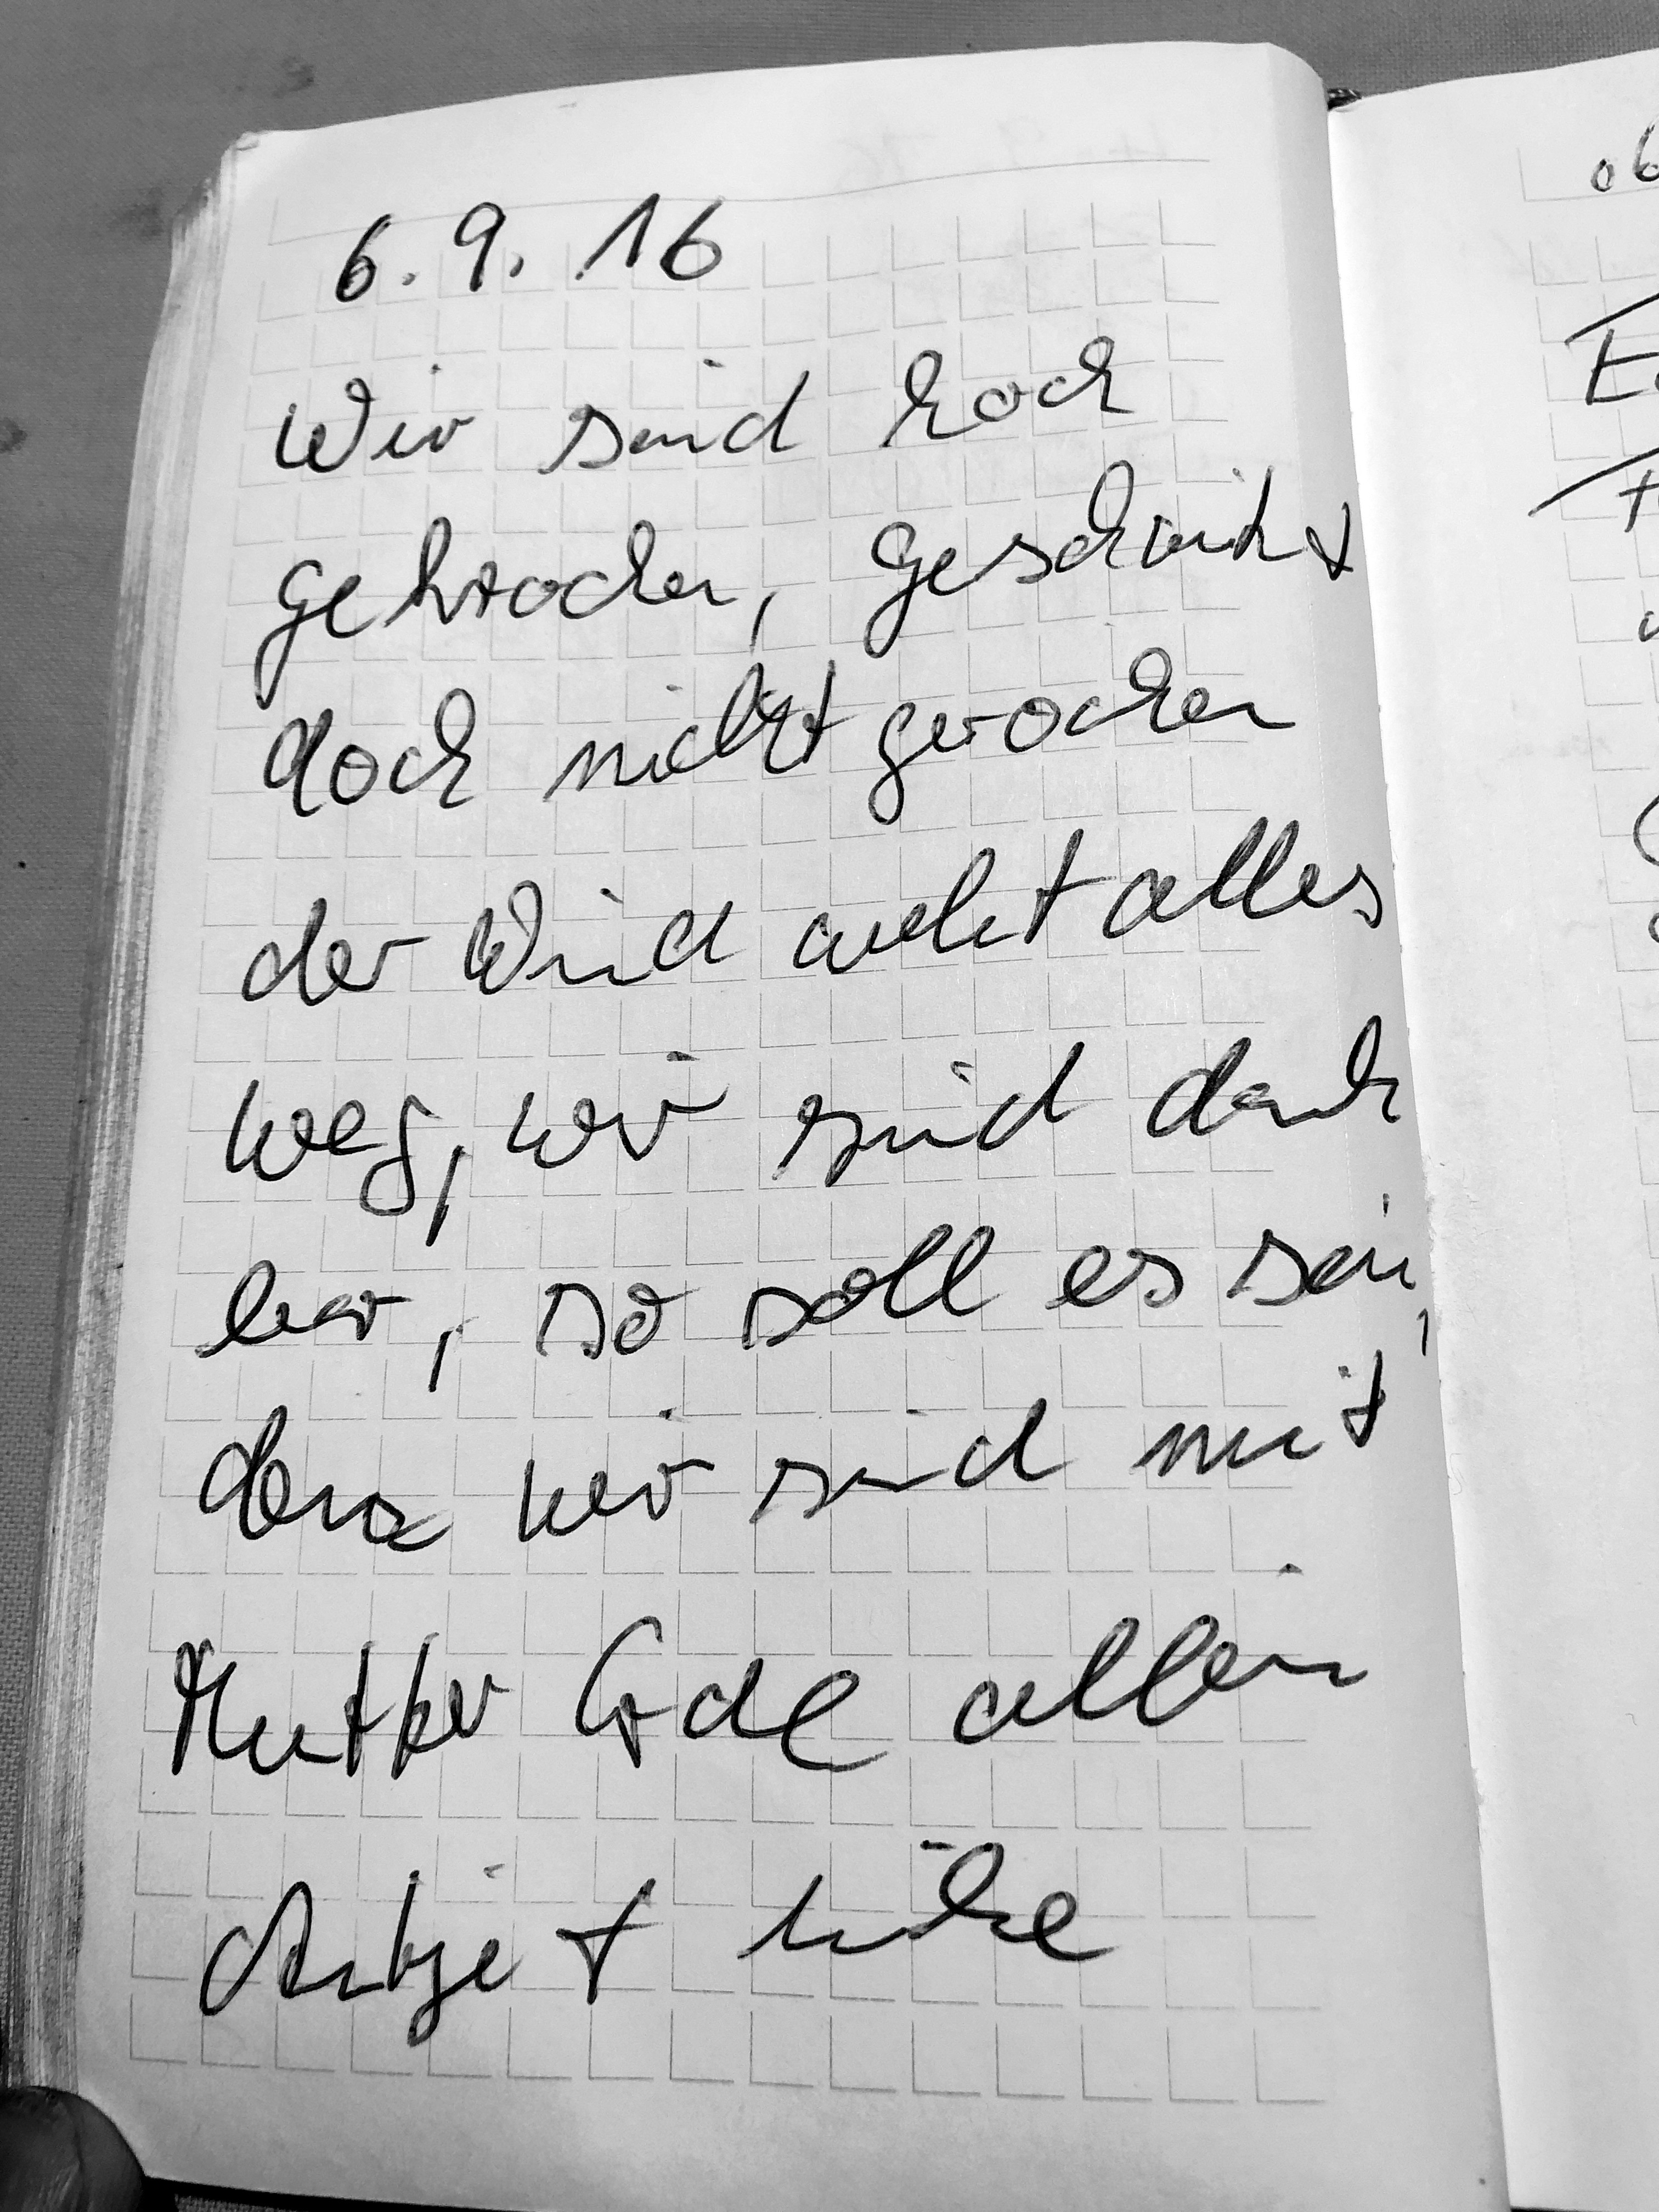 6.9.16
Wir sind hoch
gekrochen, geschwitzt
doch nicht gerochen
der Wind weht alles
weg, wir sind dank
bar, so soll es sein,
denn wir sind mit
Mutter Erde allein
Antje +